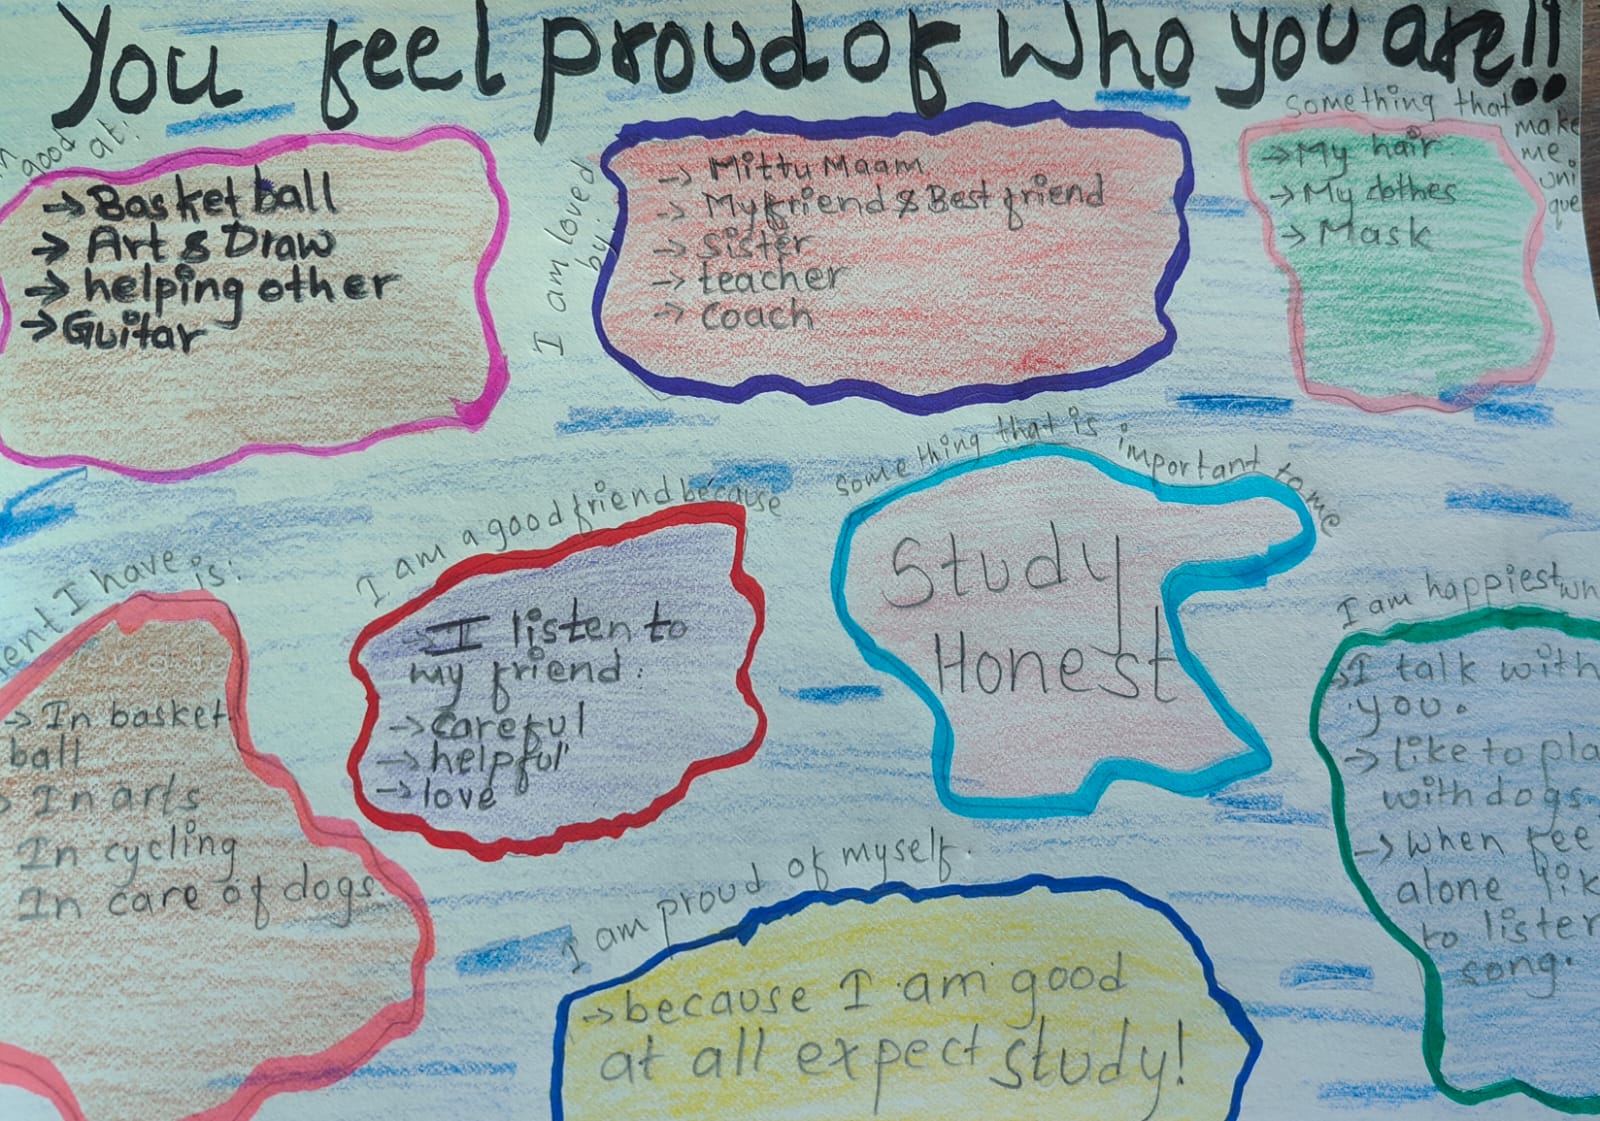 You feel proud of who you are!!
good
at:
→ Basket ball
→ Art & Draw
→ helping other
→ Guitar
I am loved
by:
→ Mittu Maam
→ My friend & Best friend
→ sister
→ teacher
→ coach
something that
make
me
uni
que
→ My hair
→ My clothes
→ Mask
I have
is:
→ In basket
ball
→ In arts
In cycling
In care of dogs.
I am a good friend because
→ I listen to
my friend.
→ careful
→ helpful
→ love
something that is important to me
Study
Honest
I am happiest
→ I talk with
you.
→ like to
with dogs
→ when
alone
to
song.
I am proud of myself.
→ because I am good
at all expect study!